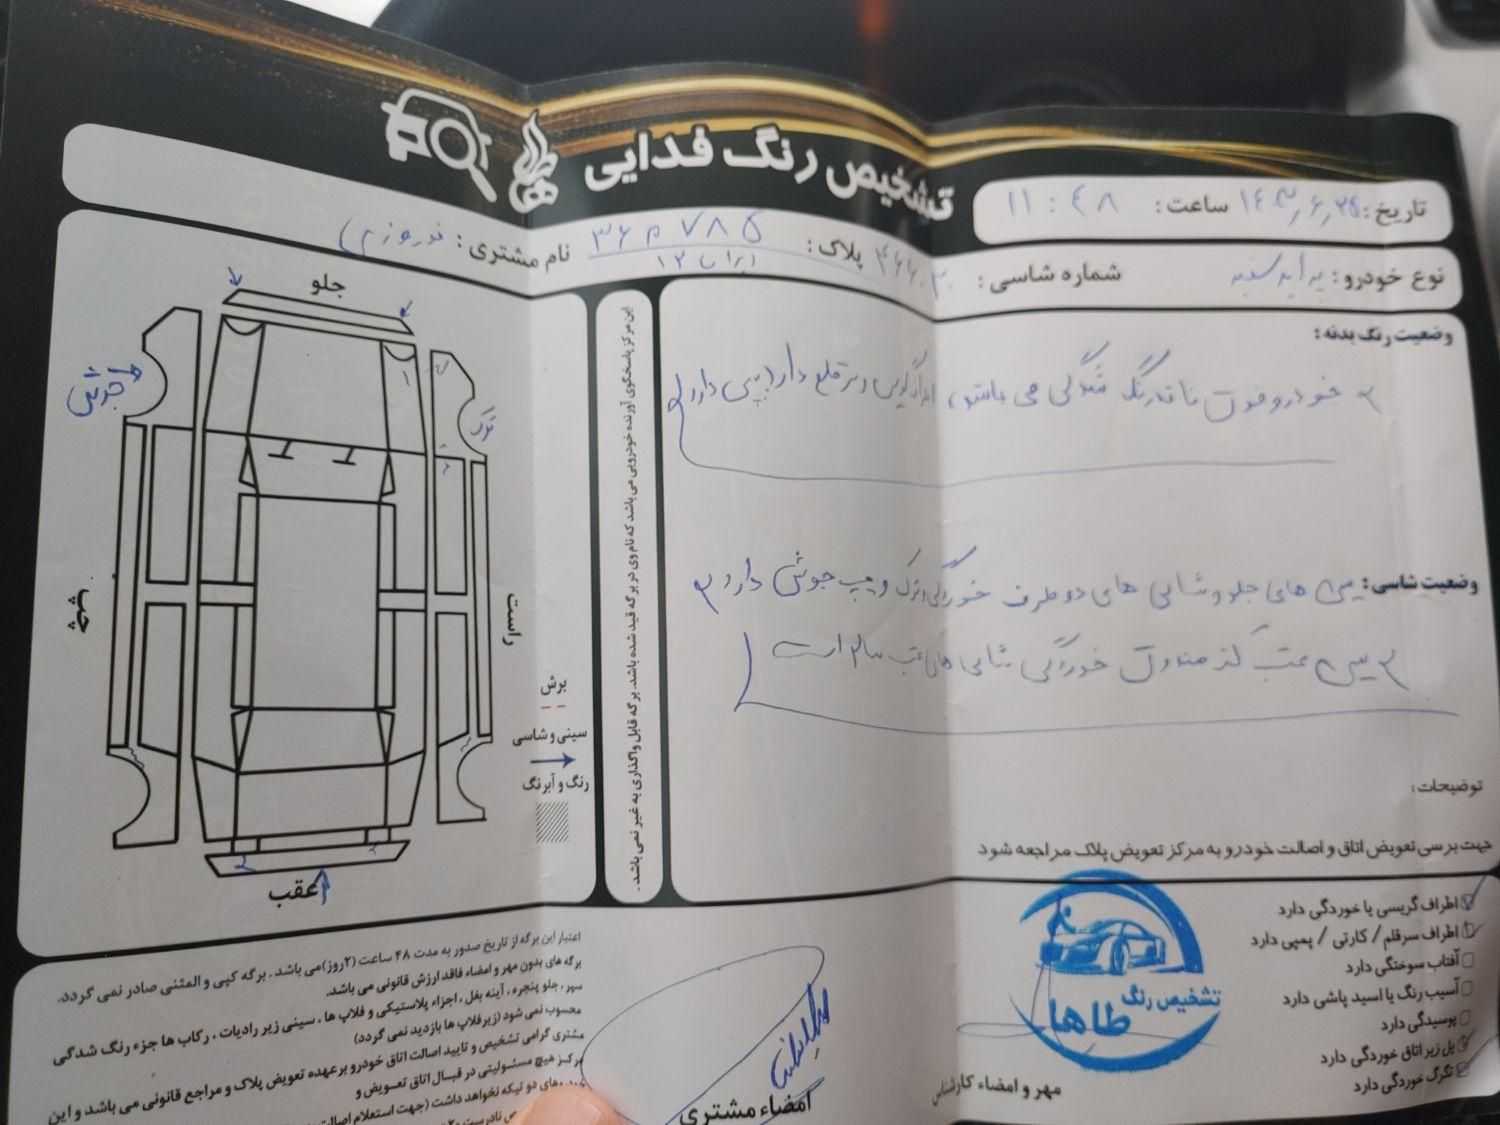 تشخیص رنگ فدایی
تاریخ: ساعت: ۱۱:۴۸
نوع خودرو: شماره شاسی: پلاک: ۷۸۵ ۳۶ م ایران ۱۲ نام مشتری:
وضعیت رنگ بدنه:
خودرو فوق فاقد رنگ شدگی می باشد، دارد
وضعیت شاسی: سینی های جلو و شاسی های دو طرف خوردگی و ترک و جوش دارد
سینی عقب کف صندوق خوردگی شاسی های عقب سالم است
توضیحات:
جهت برسی تعویض اتاق و اصالت خودرو به مرکز تعویض پلاک مراجعه شود
این مرکز پاسخگوی آورنده خودرویی می باشد که نام وی در برگه قید شده باشد. برگه قابل واگذاری به غیر نمی باشد.
جلو
راست
چپ
عقب
برش
سینی و شاسی
رنگ و آبرنگ
اطراف گریسی یا خوردگی دارد
اطراف سرقلم / کارتی / پمپی دارد
آفتاب سوختگی دارد
آسیب رنگ یا اسید پاشی دارد
پوسیدگی دارد
پل زیر اتاق خوردگی دارد
تگرگ خوردگی دارد
تشخیص رنگ
طاها
مهر و امضاء کارشناس
امضاء مشتری
اعتبار این برگه از تاریخ صدور به مدت ۴۸ ساعت (۲روز)می باشد . برگه کپی و المثنی صادر نمی گردد.
برگه های بدون مهر و امضاء فاقد ارزش قانونی می باشد.
سپر ، جلو پنجره ، آینه بغل ، اجزاء پلاستیکی و فلاپ ها ، سینی زیر رادیات ، رکاب ها جزء رنگ شدگی
محسوب نمی شود (زیر فلاپ ها بازدید نمی گردد)
مشتری گرامی تشخیص و تایید اصالت اتاق خودرو بر عهده تعویض پلاک و مراجع قانونی می باشد و این
مرکز هیچ مسئولیتی در قبال اتاق تعویض و
های دو تیکه نخواهد داشت (جهت استعلام اصالت